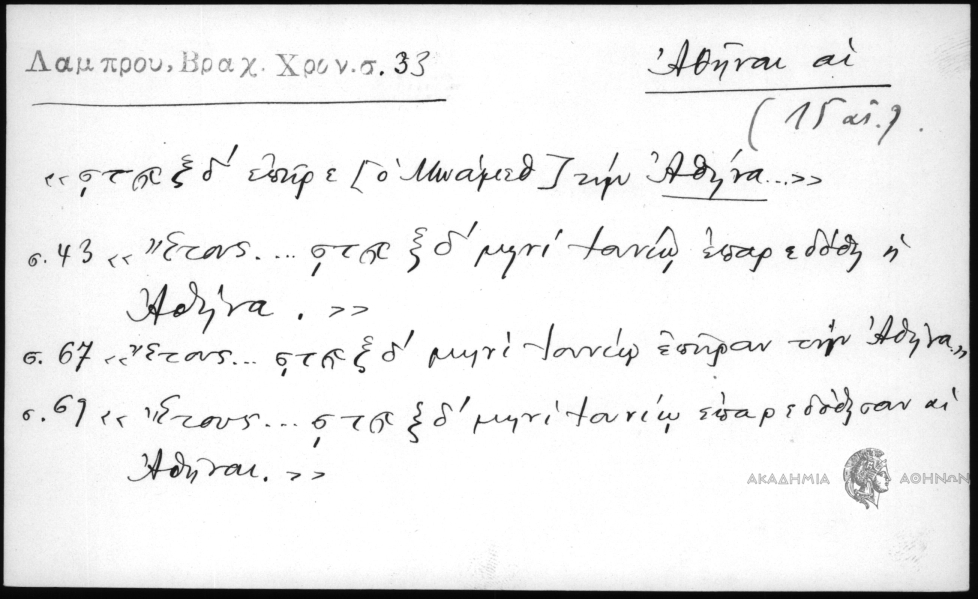 Λαμπρου, Βραχ. Χρον. σ. 33
Ἀθῆναι αἱ
(15 αἰ.).
«͵ϛϡξδ´ ἐπῆρε [ὁ Μωάμεθ] τὴν Ἀθήνα...»
σ. 43 «Ἔτους.... ͵ϛϡξδ´ μηνὶ Ἰουνίῳ ἐπαρεδόθη ἡ
Ἀθήνα. »
σ. 67 «Ἔτους... ͵ϛϡξδ´ μηνὶ Ἰουνίῳ ἐπῆραν τὴν Ἀθήνα.»
σ. 69 «Ἔτους... ͵ϛϡξδ´ μηνὶ Ἰουνίῳ ἐπαρεδόθησαν αἱ
Ἀθῆναι. »
ΑΚΑΔΗΜΙΑ ΑΘΗΝΩΝ